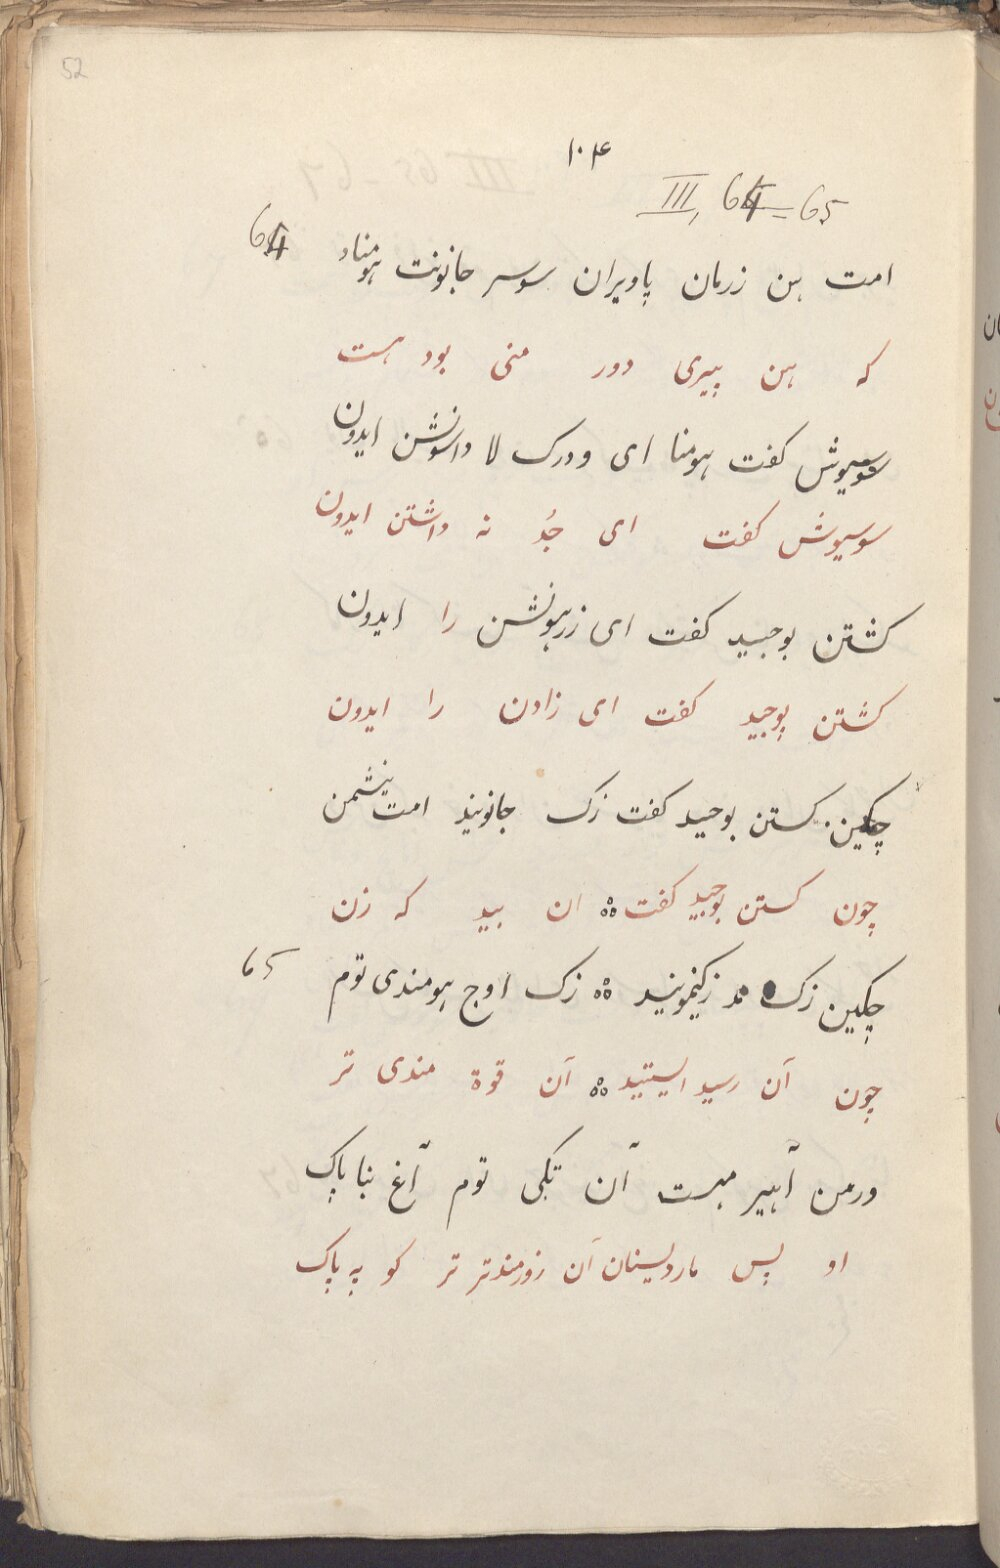 52
۱۰۴
III, 64-65
امت بن زرمان پاویران سوسر جانونت هومناد 64
که بن پیری دور منی بود هست
سوسیوش کفت هومنا ای ودرک لا داسونشن ایدون
سوسیوش کفت ای جُد نه داشتن ایدون
کشتن بوجیید کفت ای زرهونشن را ایدون
کشتن بوجید کفت ای زادن را ایدون
چکین کستن بوجید کفت زک جانونید امت نیشمن
چون کستن بوجید کفت ان بید که زن
چکین زک مد زکیمونید زک اوج هومندی توم 65
چون آن رسید ایستید آن قوة مندی تر
ورمن آبیر مست آن تکی توم آغ بنا پاک
او پس ماردیسنان آن زورمندتر تر کو به پاک